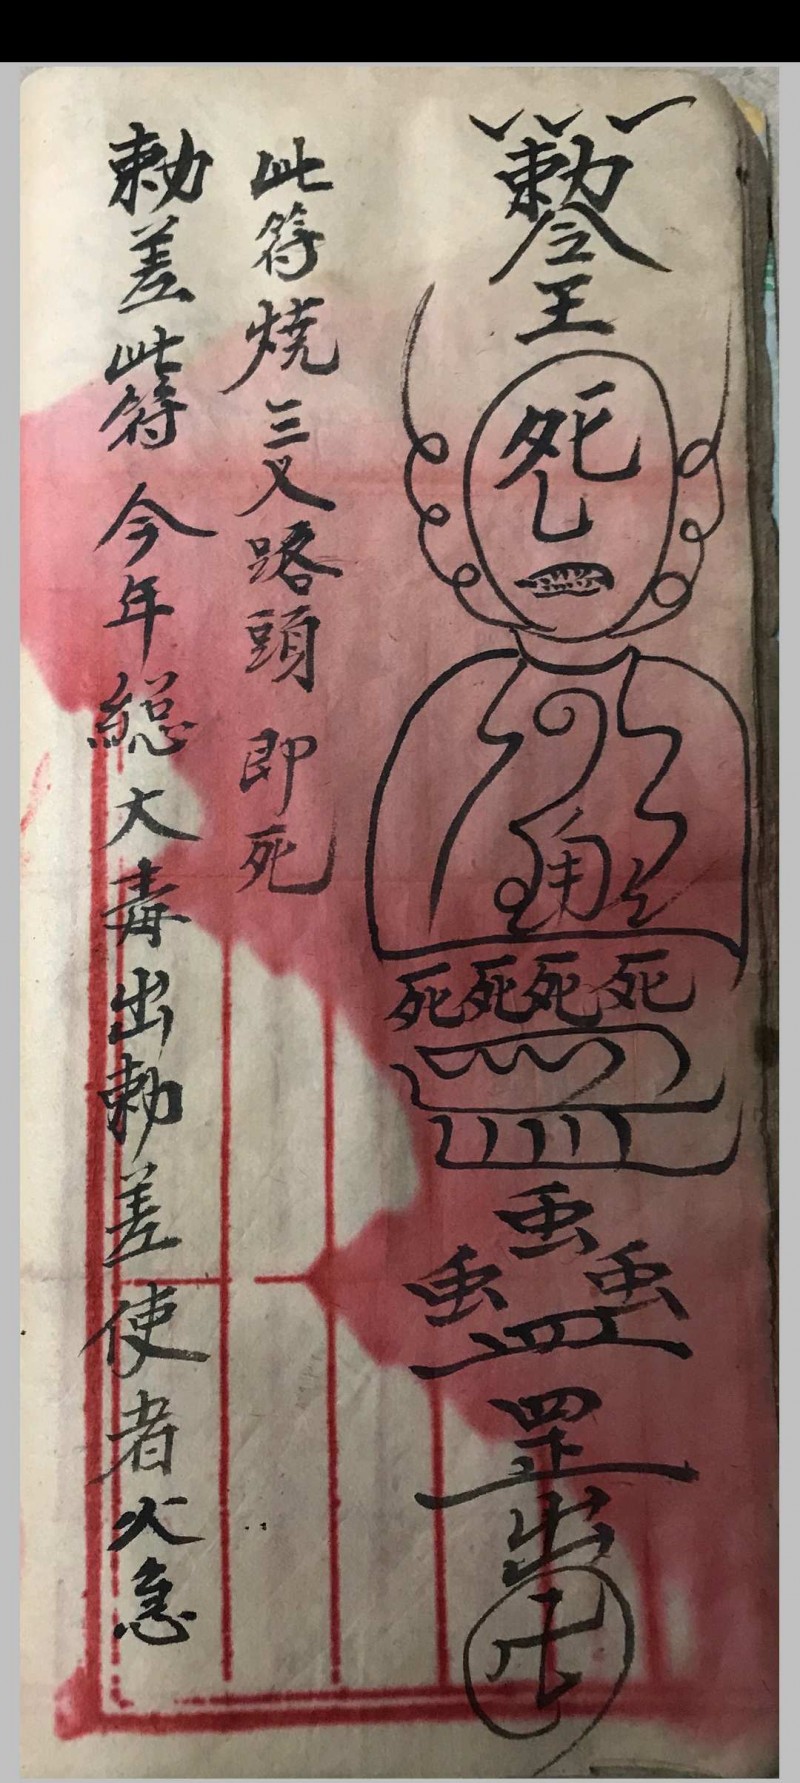 勅令王
死
角
死死死死
虫
虫虫
罡
出
卍
此符燒三叉路頭 即死
勅差此符 今年総大毒出勅差使者火急